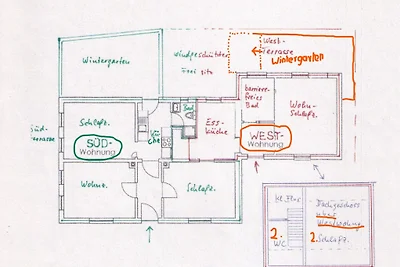 West-
terrasse
Wintergarten
Wintergarten
windgeschützter
Frei sitz
Süd-
terrasse
Schlafz.
SÜD-
Wohnung
Kü
che
Bad
Ess-
küche
barriere-
freies
Bad
Wohn-
Schlafz.
WEST-
Wohnung
Wohnz.
Schlafz.
2.
WC
Dachgeschoss
über
Westwohnung
2. Schlafz.